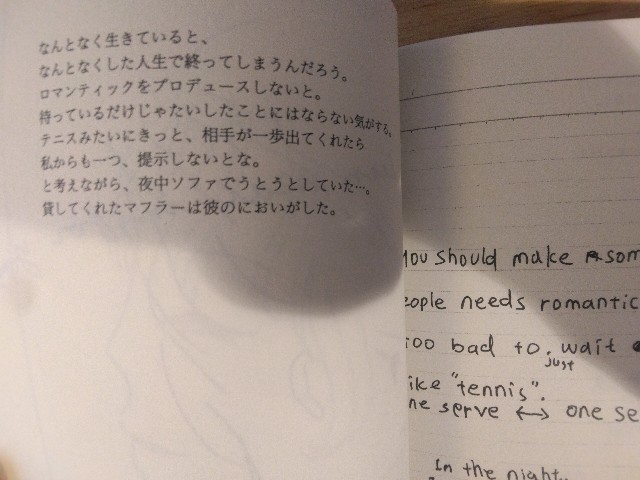 なんとなく生きていると、
なんとなくした人生で終ってしまうんだろう。
ロマンティックをプロデュースしないと。
待っているだけじゃたいしたことにはならない気がする。
テニスみたいにきっと、相手が一歩出てくれたら
私からも一つ、提示しないとな。
と考えながら、夜中ソファでうとうとしていた…。
貸してくれたマフラーは彼のにおいがした。
you should make som
eople needs romantic
too bad to just wait
ike "tennis".
ne serve ↔ one se
In the night..